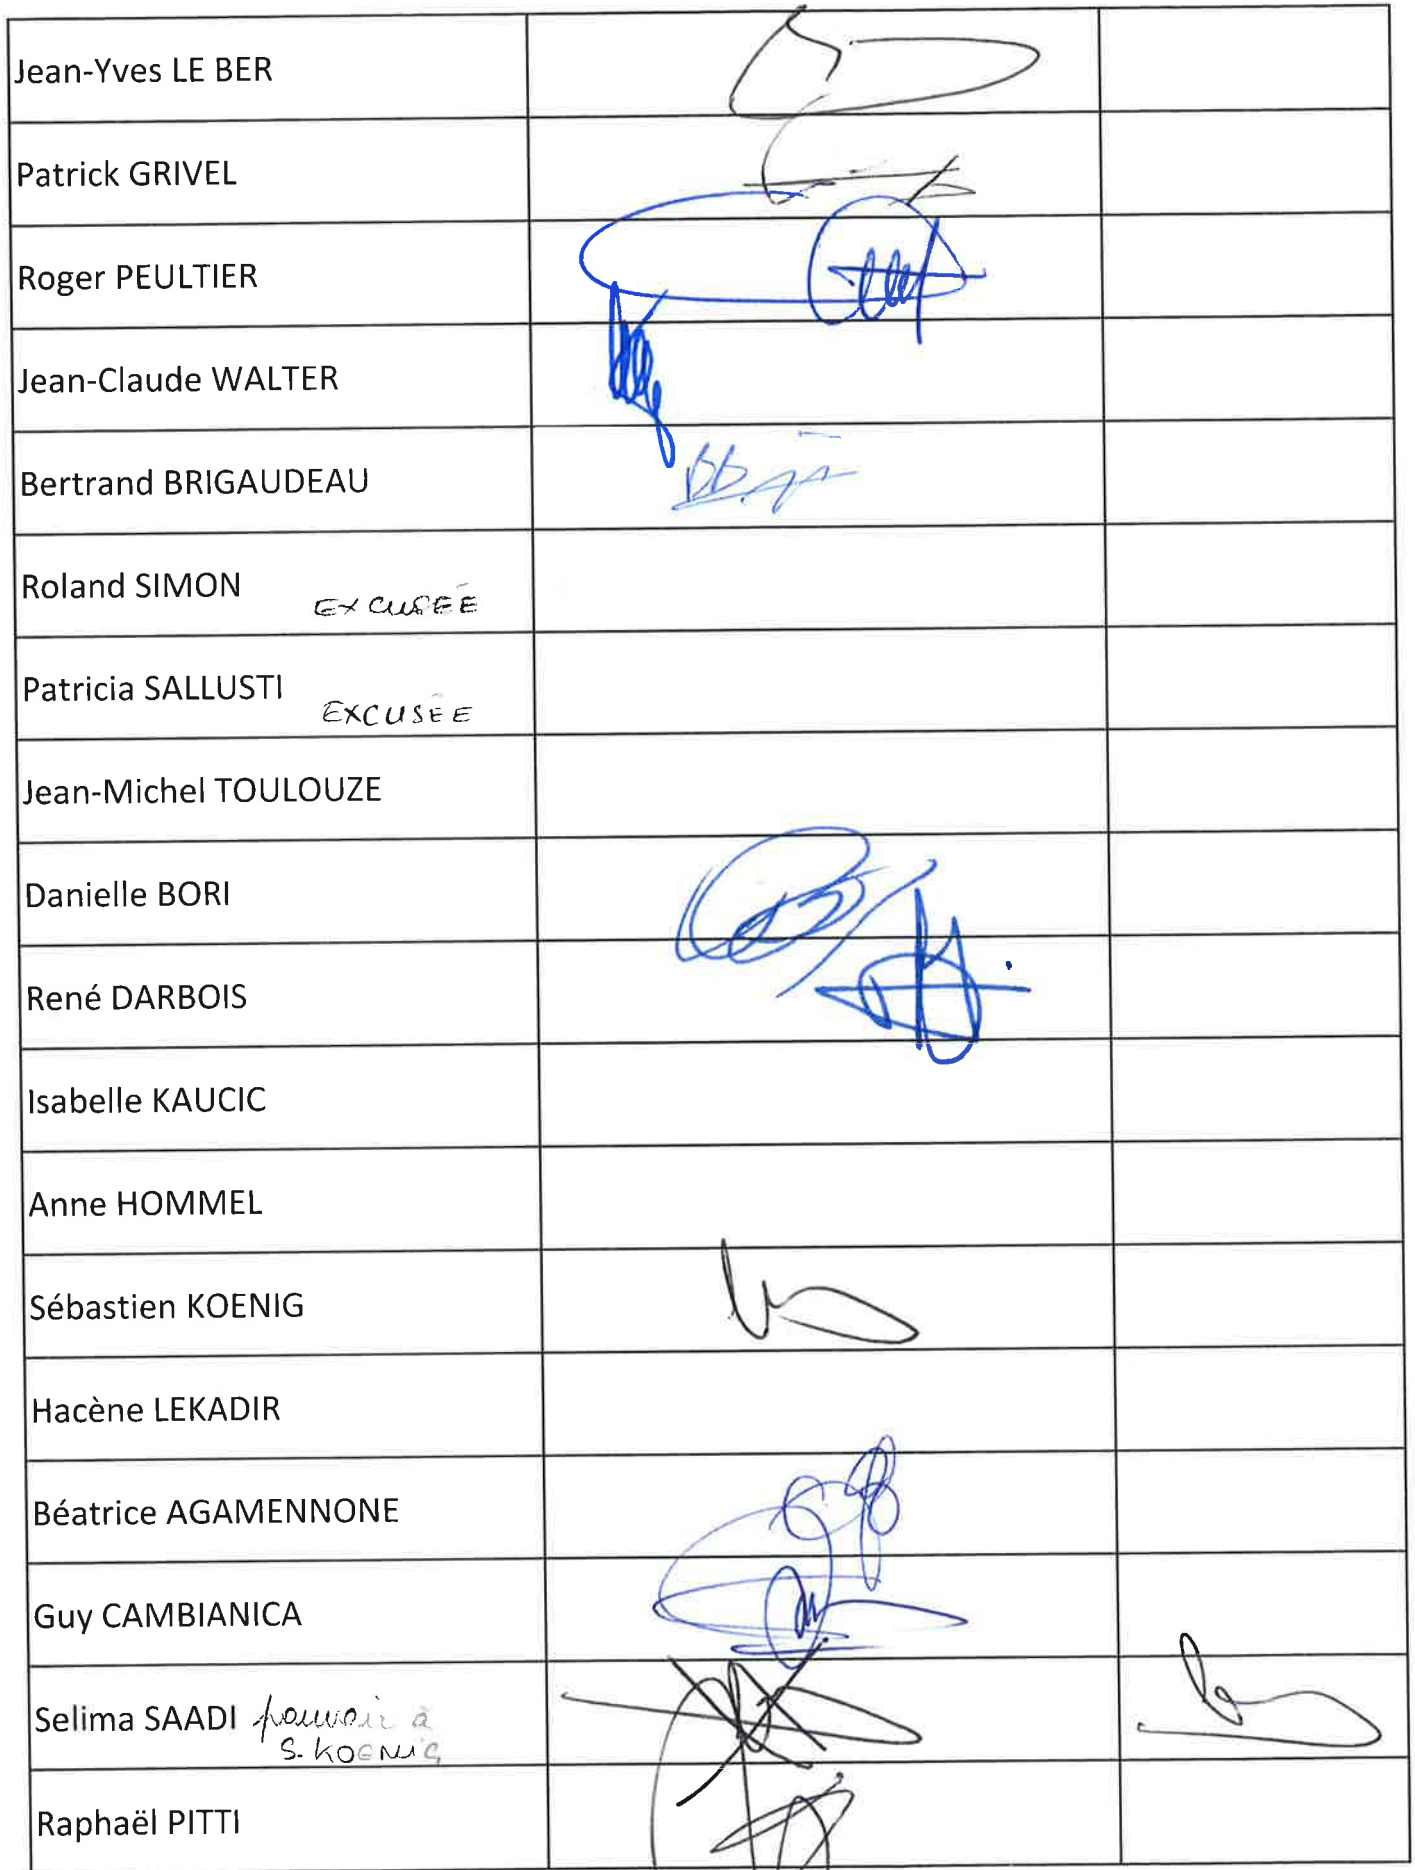 Jean-Yves LE BER
Patrick GRIVEL
Roger PEULTIER
Jean-Claude WALTER
Bertrand BRIGAUDEAU
Roland SIMON EXCUSÉE
Patricia SALLUSTI EXCUSÉE
Jean-Michel TOULOUZE
Danielle BORI
René DARBOIS
Isabelle KAUCIC
Anne HOMMEL
Sébastien KOENIG
Hacène LEKADIR
Béatrice AGAMENNONE
Guy CAMBIANICA
Selima SAADI pouvoir à
S. KOENIG
Raphaël PITTI